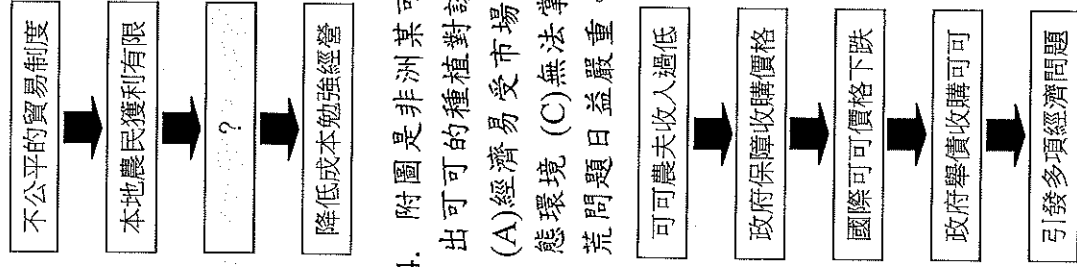 不公平的貿易制度
本地農民獲利有限
?
降低成本勉強經營
4. 附圖是非洲某可
出可可的種植對該
(A)經濟易受市場
態環境 (C)無法掌
荒問題日益嚴重。
可可農夫收入過低
政府保障收購價格
國際可可價格下跌
政府舉債收購可可
引發多項經濟問題